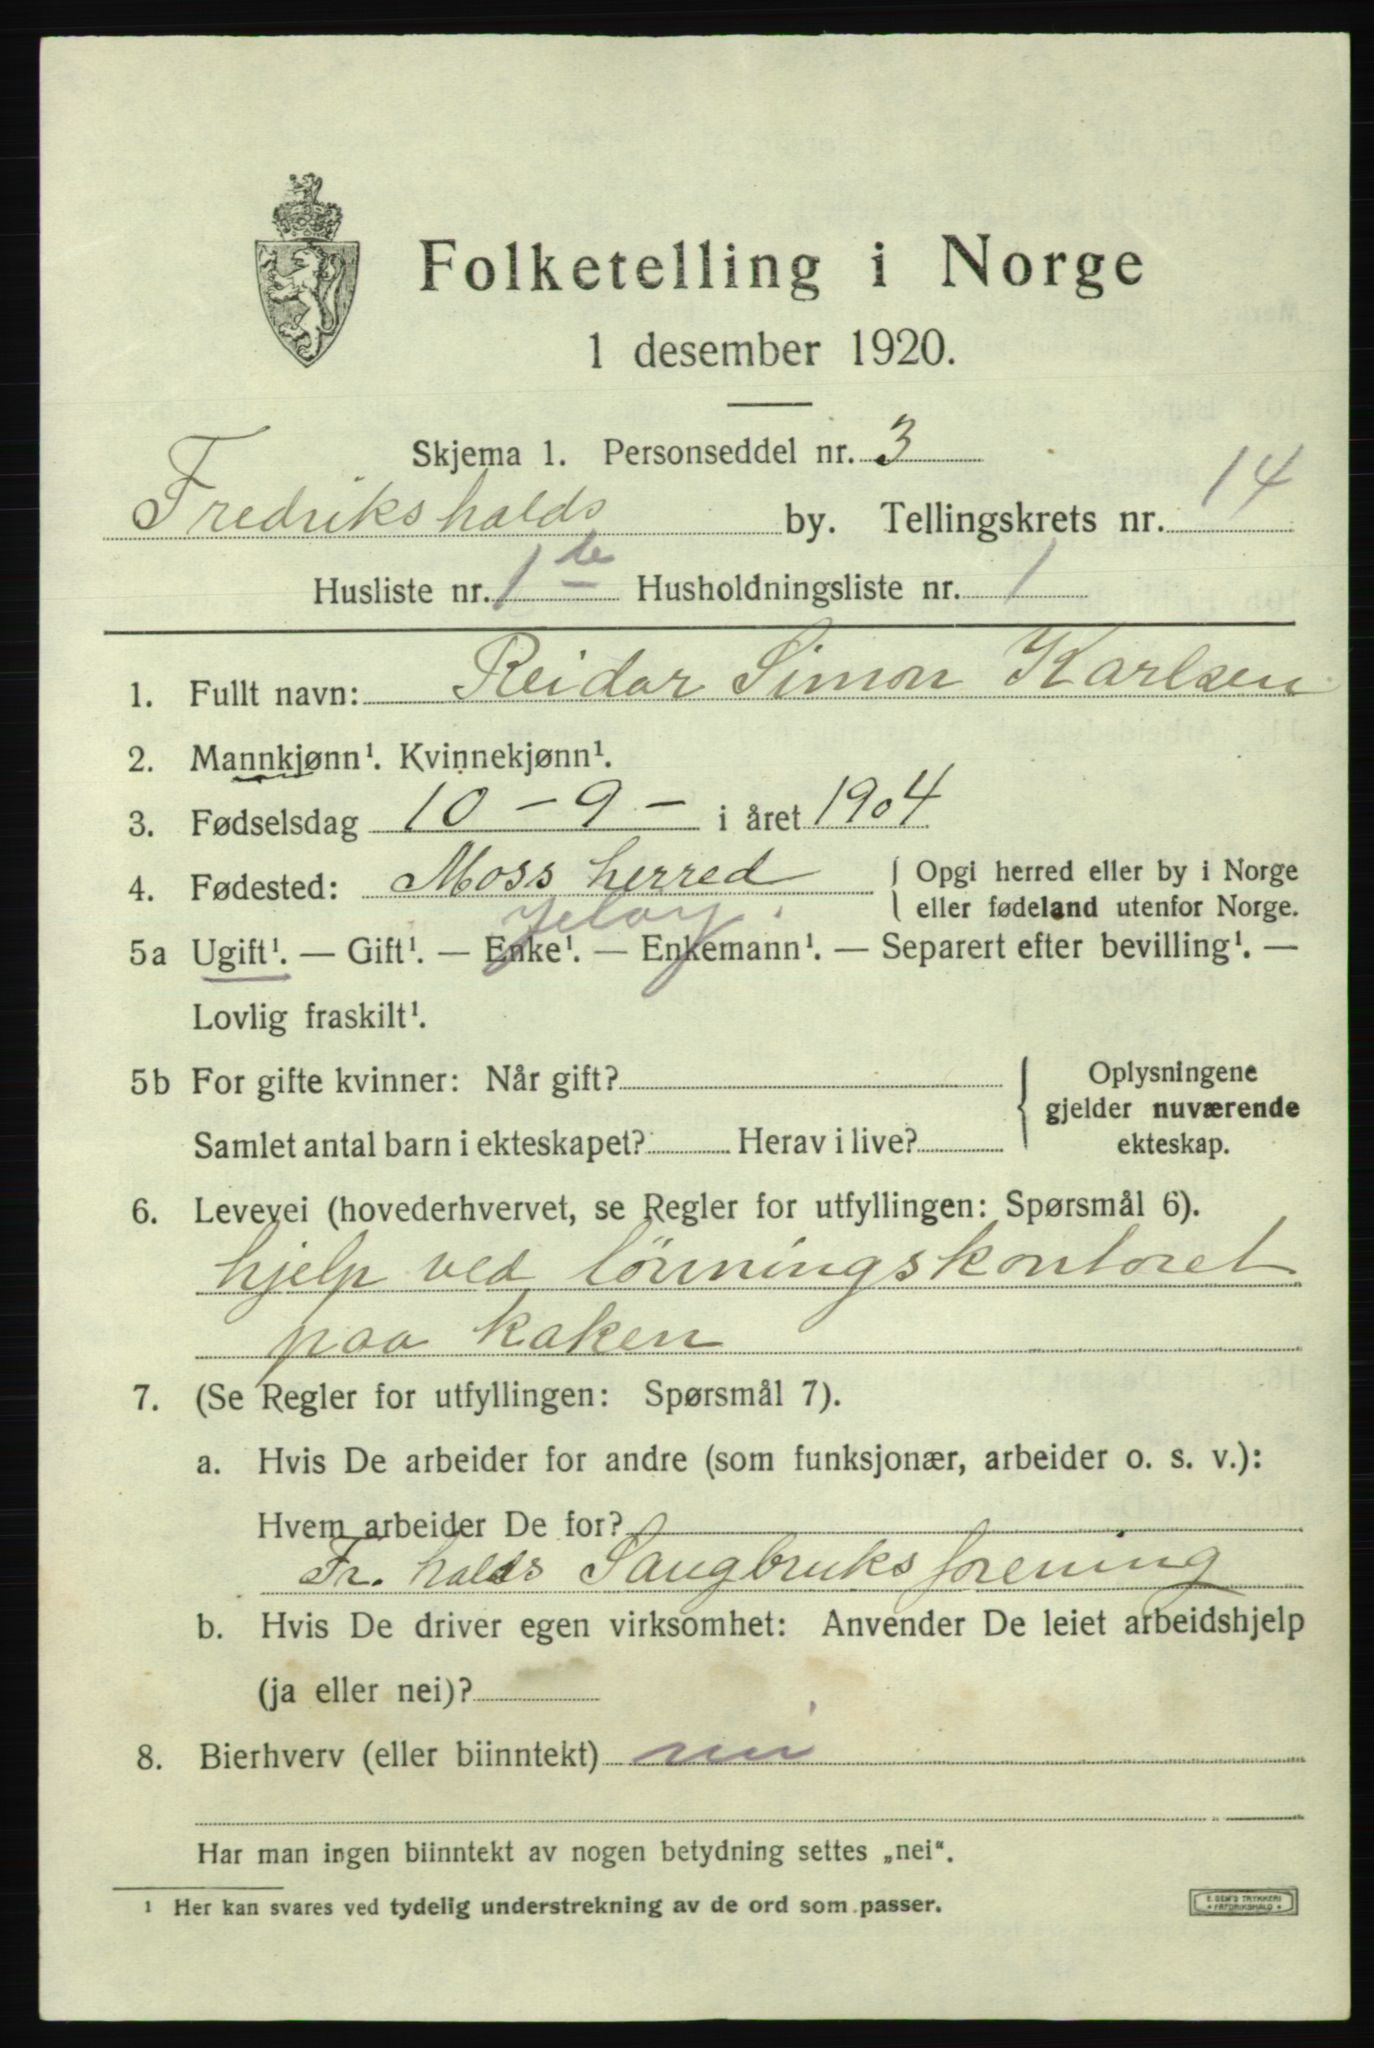 Folketelling i Norge
1 desember 1920.
Skjema 1. Personseddel nr. 3
Fredrikshalds by. Tellingskrets nr. 14
Husliste nr. 1te Husholdningsliste nr. 1
1. Fullt navn: Reidar Simon Karlsen
2. Mannkjønn¹. Kvinnekjønn¹.
3. Fødselsdag 10 - 9 - i året 1904
4. Fødested: Moss herred { Opgi herred eller by i Norge
eller fødeland utenfor Norge.
Jeløy.
5a Ugift¹. — Gift¹. — Enke¹. — Enkemann¹. — Separert efter bevilling¹. —
Lovlig fraskilt¹.
5b For gifte kvinner: Når gift?
Samlet antal barn i ekteskapet? Herav i live?
Oplysningene
gjelder nuværende
ekteskap.
6. Levevei (hovederhvervet, se Regler for utfyllingen: Spørsmål 6).
hjelp ved lönningskontoret
paa kaken
7. (Se Regler for utfyllingen: Spørsmål 7).
a. Hvis De arbeider for andre (som funksjonær, arbeider o. s. v.):
Hvem arbeider De for?
Fr. halds Saugbruksforening
b. Hvis De driver egen virksomhet: Anvender De leiet arbeidshjelp
(ja eller nei)?
8. Bierhverv (eller biinntekt) nei
Har man ingen biinntekt av nogen betydning settes „nei“.
¹ Her kan svares ved tydelig understrekning av de ord som passer.
E. SEM'S TRYKKERI
* FREDRIKSHALD *